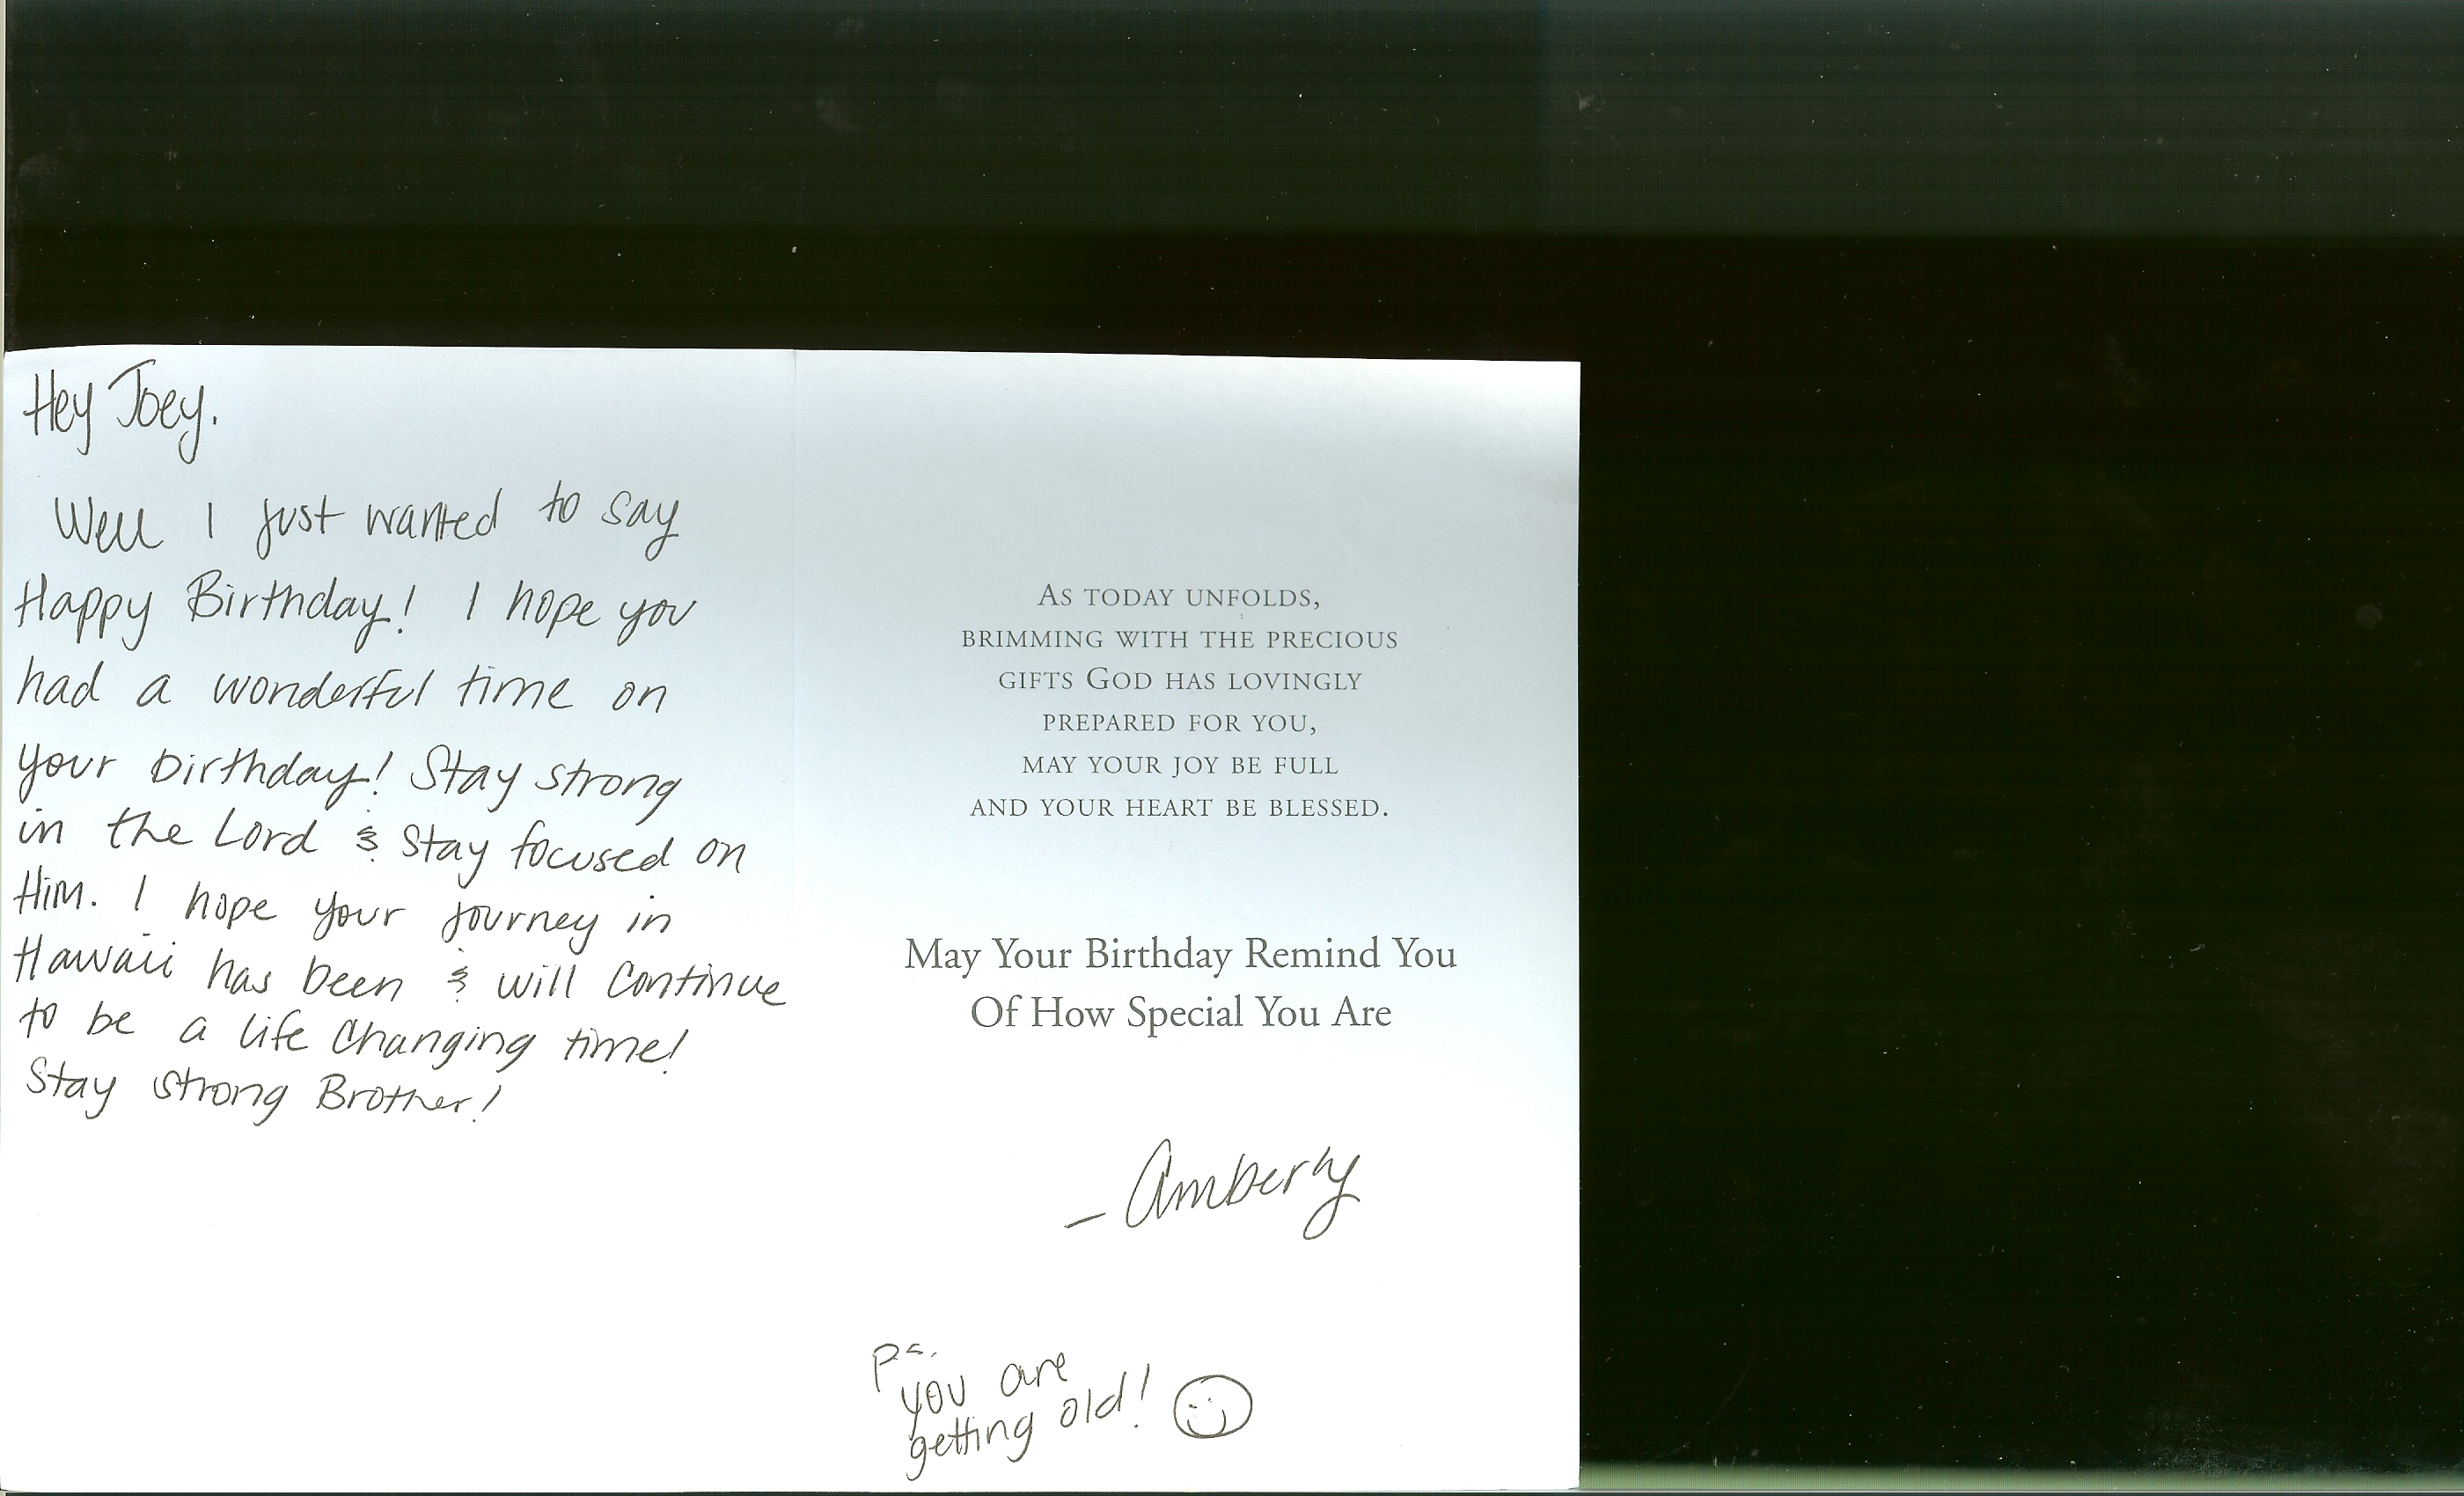 Hey Joey.
Well I just wanted to say
Happy Birthday! I hope you
had a wonderful time on
your birthday! Stay strong
in the Lord & stay focused on
Him. I hope your journey in
Hawaii has been & will continue
to be a life changing time!
Stay strong Brother!
As today unfolds,
brimming with the precious
gifts God has lovingly
prepared for you,
may your joy be full
and your heart be blessed.
May Your Birthday Remind You
Of How Special You Are
- Amberly
Ps.
you are
getting old!